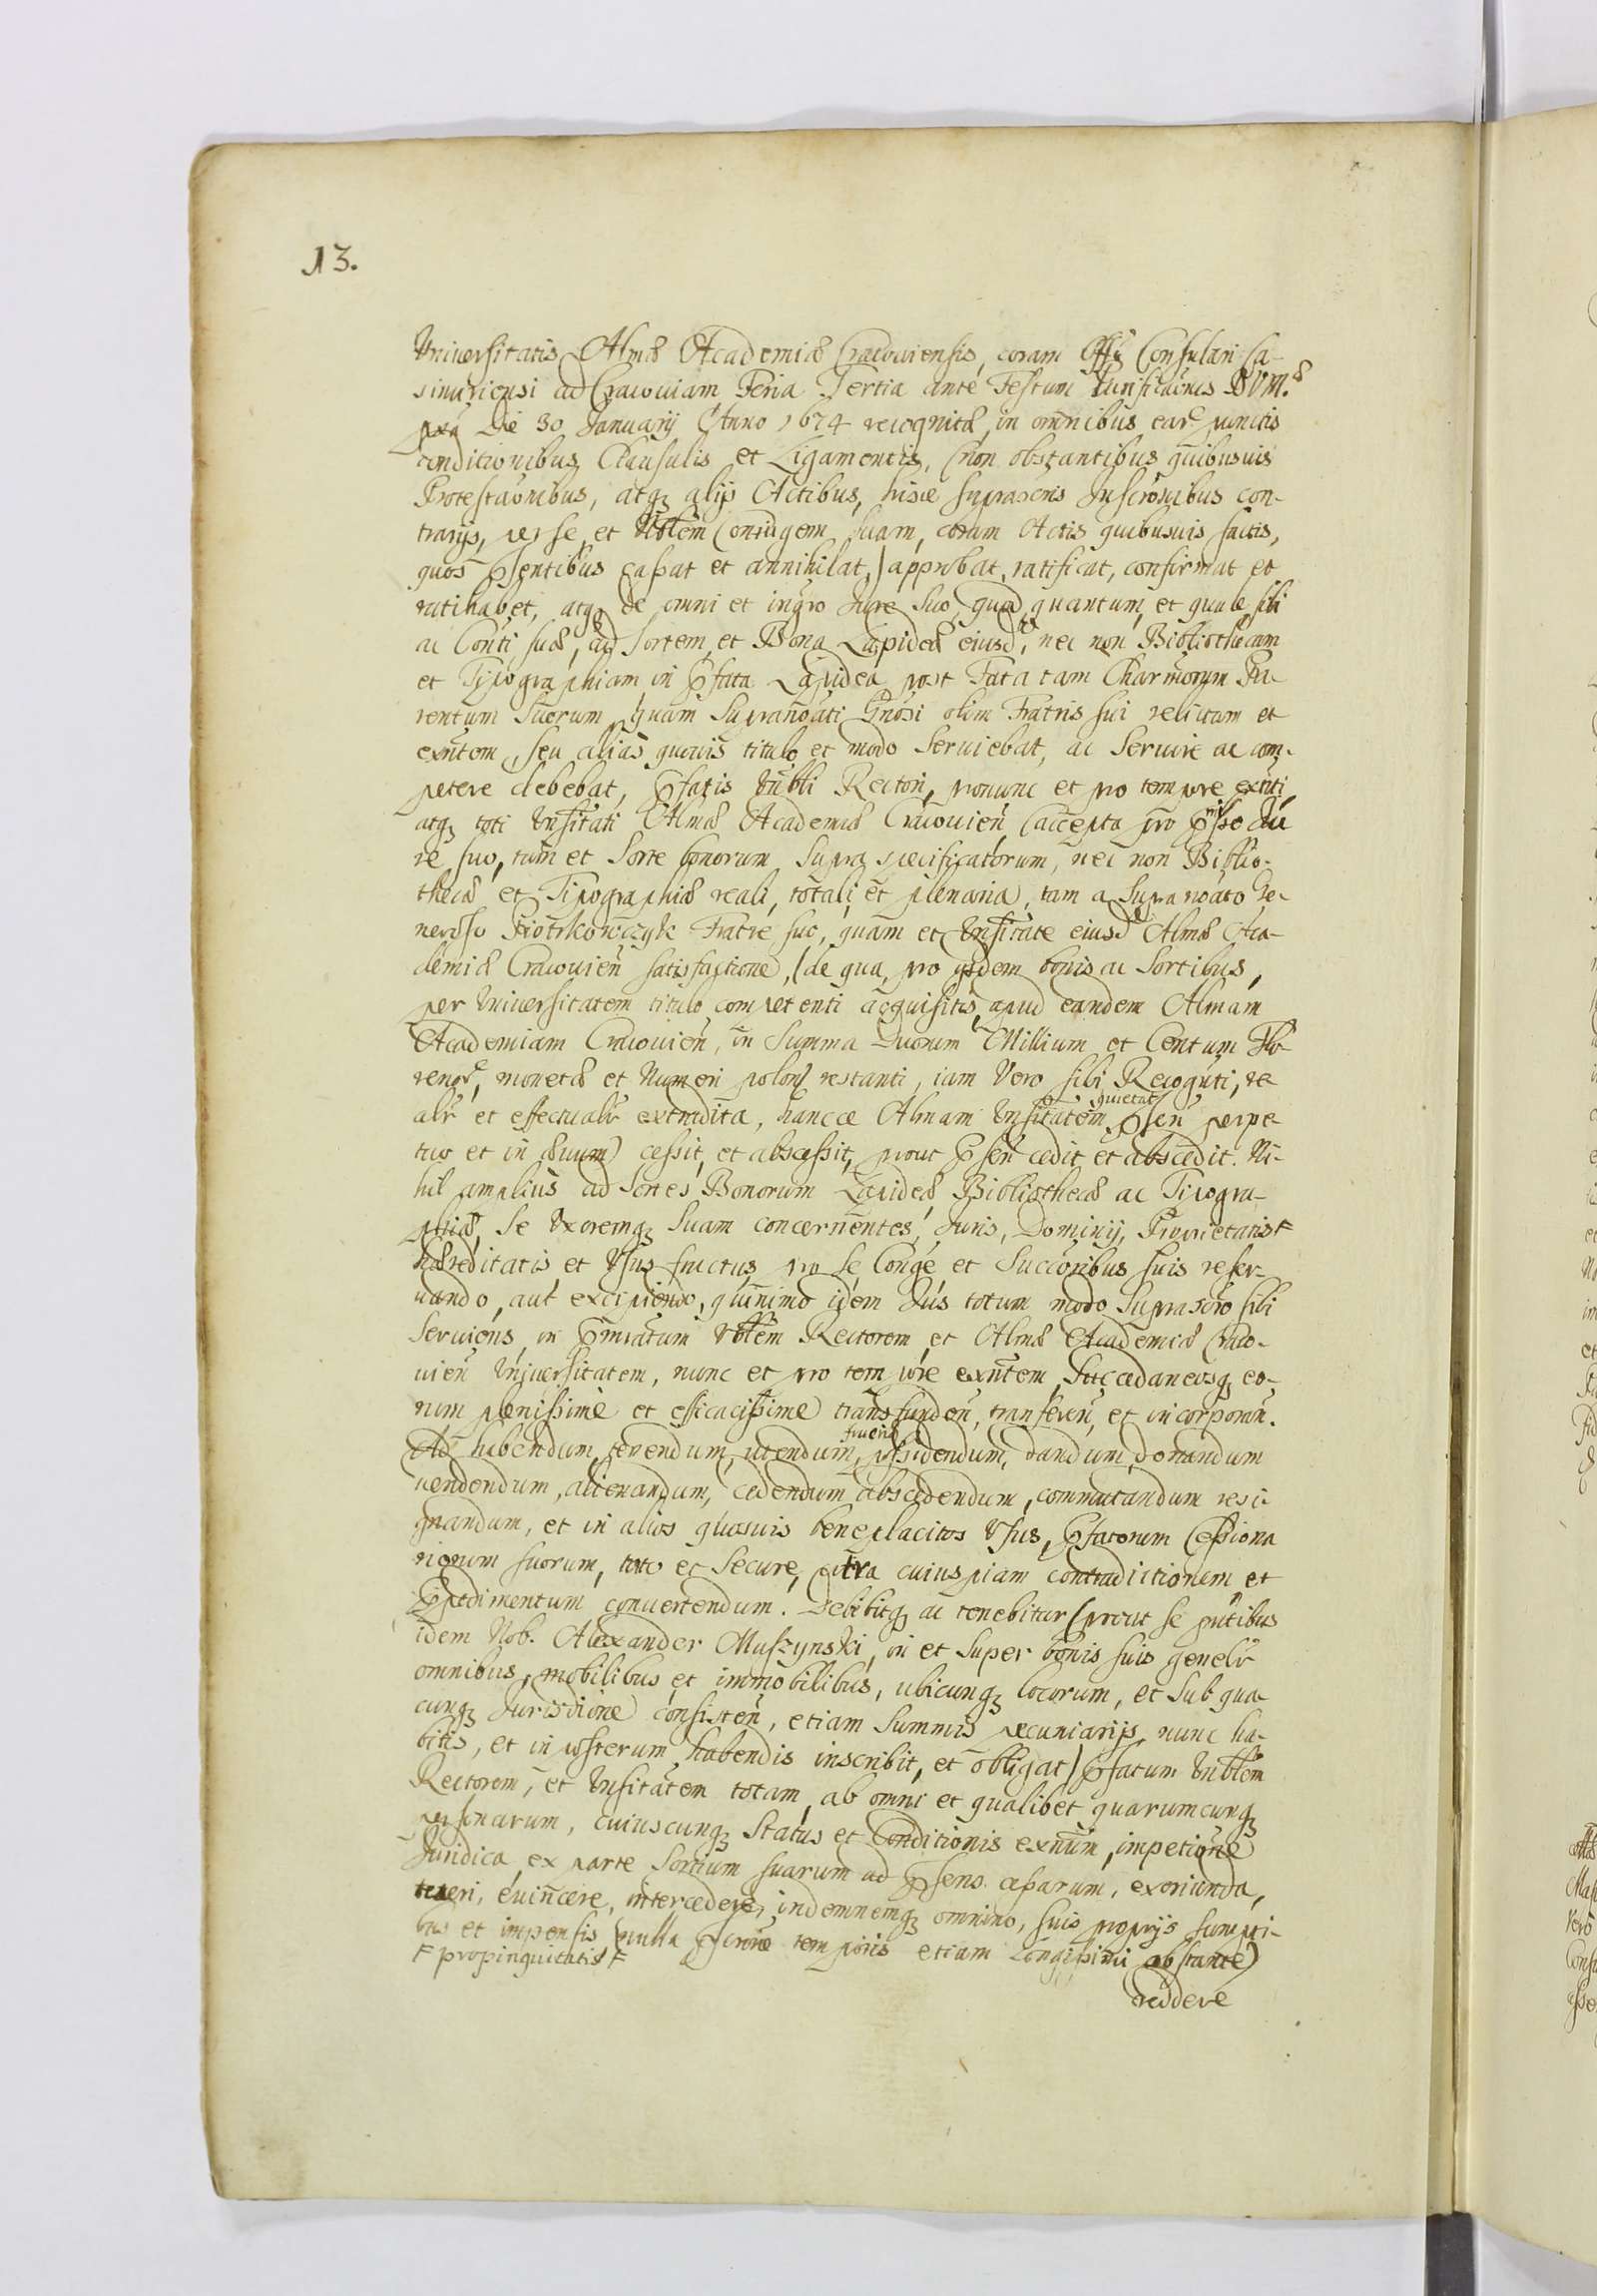 13.
Vniuersitatis Almæ Academiæ Cracouiensis, coram Offo Consulari Ca-
simiriensi ad Cracouiam Feria Tertia ante Festum Purificãonis BVM.æ
pxa Die 30 Januarij Anno 1674 recognitæ, in omnibus earũ punctis
conditionibus, Clausulis et Ligamentis, (non obstantibus quibusuis
Protestãonibus, atq3 alijs Actibus, hisce suprascris Inscrõnibus con-
trarijs, per se, et Nblem Coniugem suam, coram Actis quibusuis factis,
quos pñsentibus cassat et annihilat,) approbat, ratificat, confirmat et
ratihabet, atq3 de omni et integro Jure suo, quod, quantum, et quale sibi
ac Conti suæ, ad sortem, et Bona Lapideæ eiusd, nec non Bibliothecam
et Typographiam in pfata Lapidea post Fata tam Charmorum Pa-
rentum Suorum, quam Supranoãti Gnõsi olim Fratris sui relictam et
exñtem, seu alias quouis titulo et modo Seruiebat, ac Seruire ac com-
petere debebat, pfatis Mbli Rectori, pronunc et pro tempore exñti,
atq3 toti Vnsitati Almæ Academiæ Cracouien (accepta pro pmisso Ju
re suo, tum et Sorte bonorum supra specificatorum, nec non Biblio-
thecæ et Tipographiæ reali, totali, et plenaria, tam a Supranoãto Ge-
neroso Piotrkowczyk Fratre suo, quam et Vnsitate eiusd Almæ Aca-
demiæ Cracouien satisfactione, (de qua, pro ijsdem bonis ac Sortibus,
per Vniuersitatem titulo competenti acquisitis, apud eandem Almam
Academiam Cracouien, in Summa Duorum Millium et Centum Flo-
renor, monetæ et Numeri polonl restanti, iam Vero sibi Recognti, re
alr et effectualr extradita, hancce Almam Vnsitatem quietat psen perpe-
tuo et in æuum) cessit, et abscessit, prout psen cedit et abscedit. Ni-
hil amplius ad Sortes Bonorum Lapideæ, Bibliothecæ ac Tipogra-
phiæ, Se Vxoremq3 Suam concernentes, Juris, Dominij, Proprietatis F
hæreditatis, et Vsus fructus, pro se, Conge, et Succõribus suis reser-
uando, aut excipiendo, quinimo idem Jus totum modo Suprascro sibi
Seruiens, in pmiatum Mblem Rectorem, et Almæ Academiæ Craco-
uien Vniuersitatem, nunc et pro tempore exñtem, Succedaneosq3 eo-
rum plenissimè et efficacissime transfunden, transferen, et incorporan.
Ad habendum, tenendum, utendum, fruend possidendum, dandum, donandum
uendendum, alienandum, cedendum abscedendum, commutandum resi-
gnandum, et in alios quosuis beneplacitos Vsus, pfatorum Cessiona
riorum suorum, tuto et Secure, citra cuiuspiam contradictionem et
Impedimentum conuertendum. Debibitq3 ac tenebitur (prout se pñtibus
idem Nob. Alexander Muszynski, in et super bonis suis genelr
omnibus, mobilibus et immobilibus, ubicunq3 locorum, et sub qua-
cunq3 Jurisdione consisten, etiam Summis pecuniarijs, nunc ha-
bitis, et in posterum habendis inscribit, et obligat) pfatum Mblem
Rectorem, et Vnsitatem totam, ab omni et qualibet quarumcunq3
personarum, cuiuscunq3 Status et Conditionis exñtium, impetione
Juridica, ex parte Sortium suarum ad psens cessarum, exoriunda,
tueri, euincere, intercedere, indemnemq3 omnino, suis proprijs sumpti-
bus et impensis (nulla pscrone temporis etiam Longissimi obstante)
F propinquitatis F
reddere